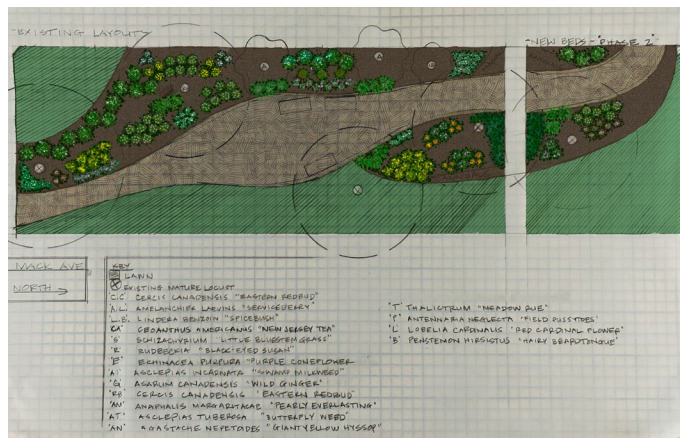 EXISTING LAYOUT
NEW BEDS - "PHASE 2"
MACK AVE
NORTH →
KEY
LAWN
EXISTING MATURE LOCUST
'C.C.' CERCIS CANADENSIS "EASTERN REDBUD"
'A.L.' AMELANCHIER LAEVIUS "SERVICEBERRY"
'L.B.' LINDERA BENZOIN "SPICEBUSH"
'CA' CEOANTHUS AMERICANUS "NEW JERSEY TEA"
'S' SCHIZACHYRIUM "LITTLE BLUESTEM GRASS"
'R' RUDBECKIA "BLACK-EYED SUSAN"
'E' ECHINACEA PURPURA "PURPLE CONEFLOWER
'AI' ASCLEPIAS INCARNATA "SWAMP MILKWEED"
'G' ASARUM CANADENSIS "WILD GINGER"
CERCIS CANADENSIS "EASTERN REDBUD"
'AM' ANAPHALIS MARGARITACAE "PEARLY EVERLASTING"
'AT' ASCLEPIAS TUBEROSA "BUTTERFLY WEED"
'AN' AGASTACHE NEPETOIDES "GIANT YELLOW HYSSOP"
'T' THALICTRUM "MEADOW RUE"
'P' ANTENNARIA NEGLECTA "FIELD PUSSYTOES"
'L' LOBELIA CARDINALIS "RED CARDINAL FLOWER"
'B' PENSTEMON HIRSISTUS "HAIRY BEARDTONGUE"